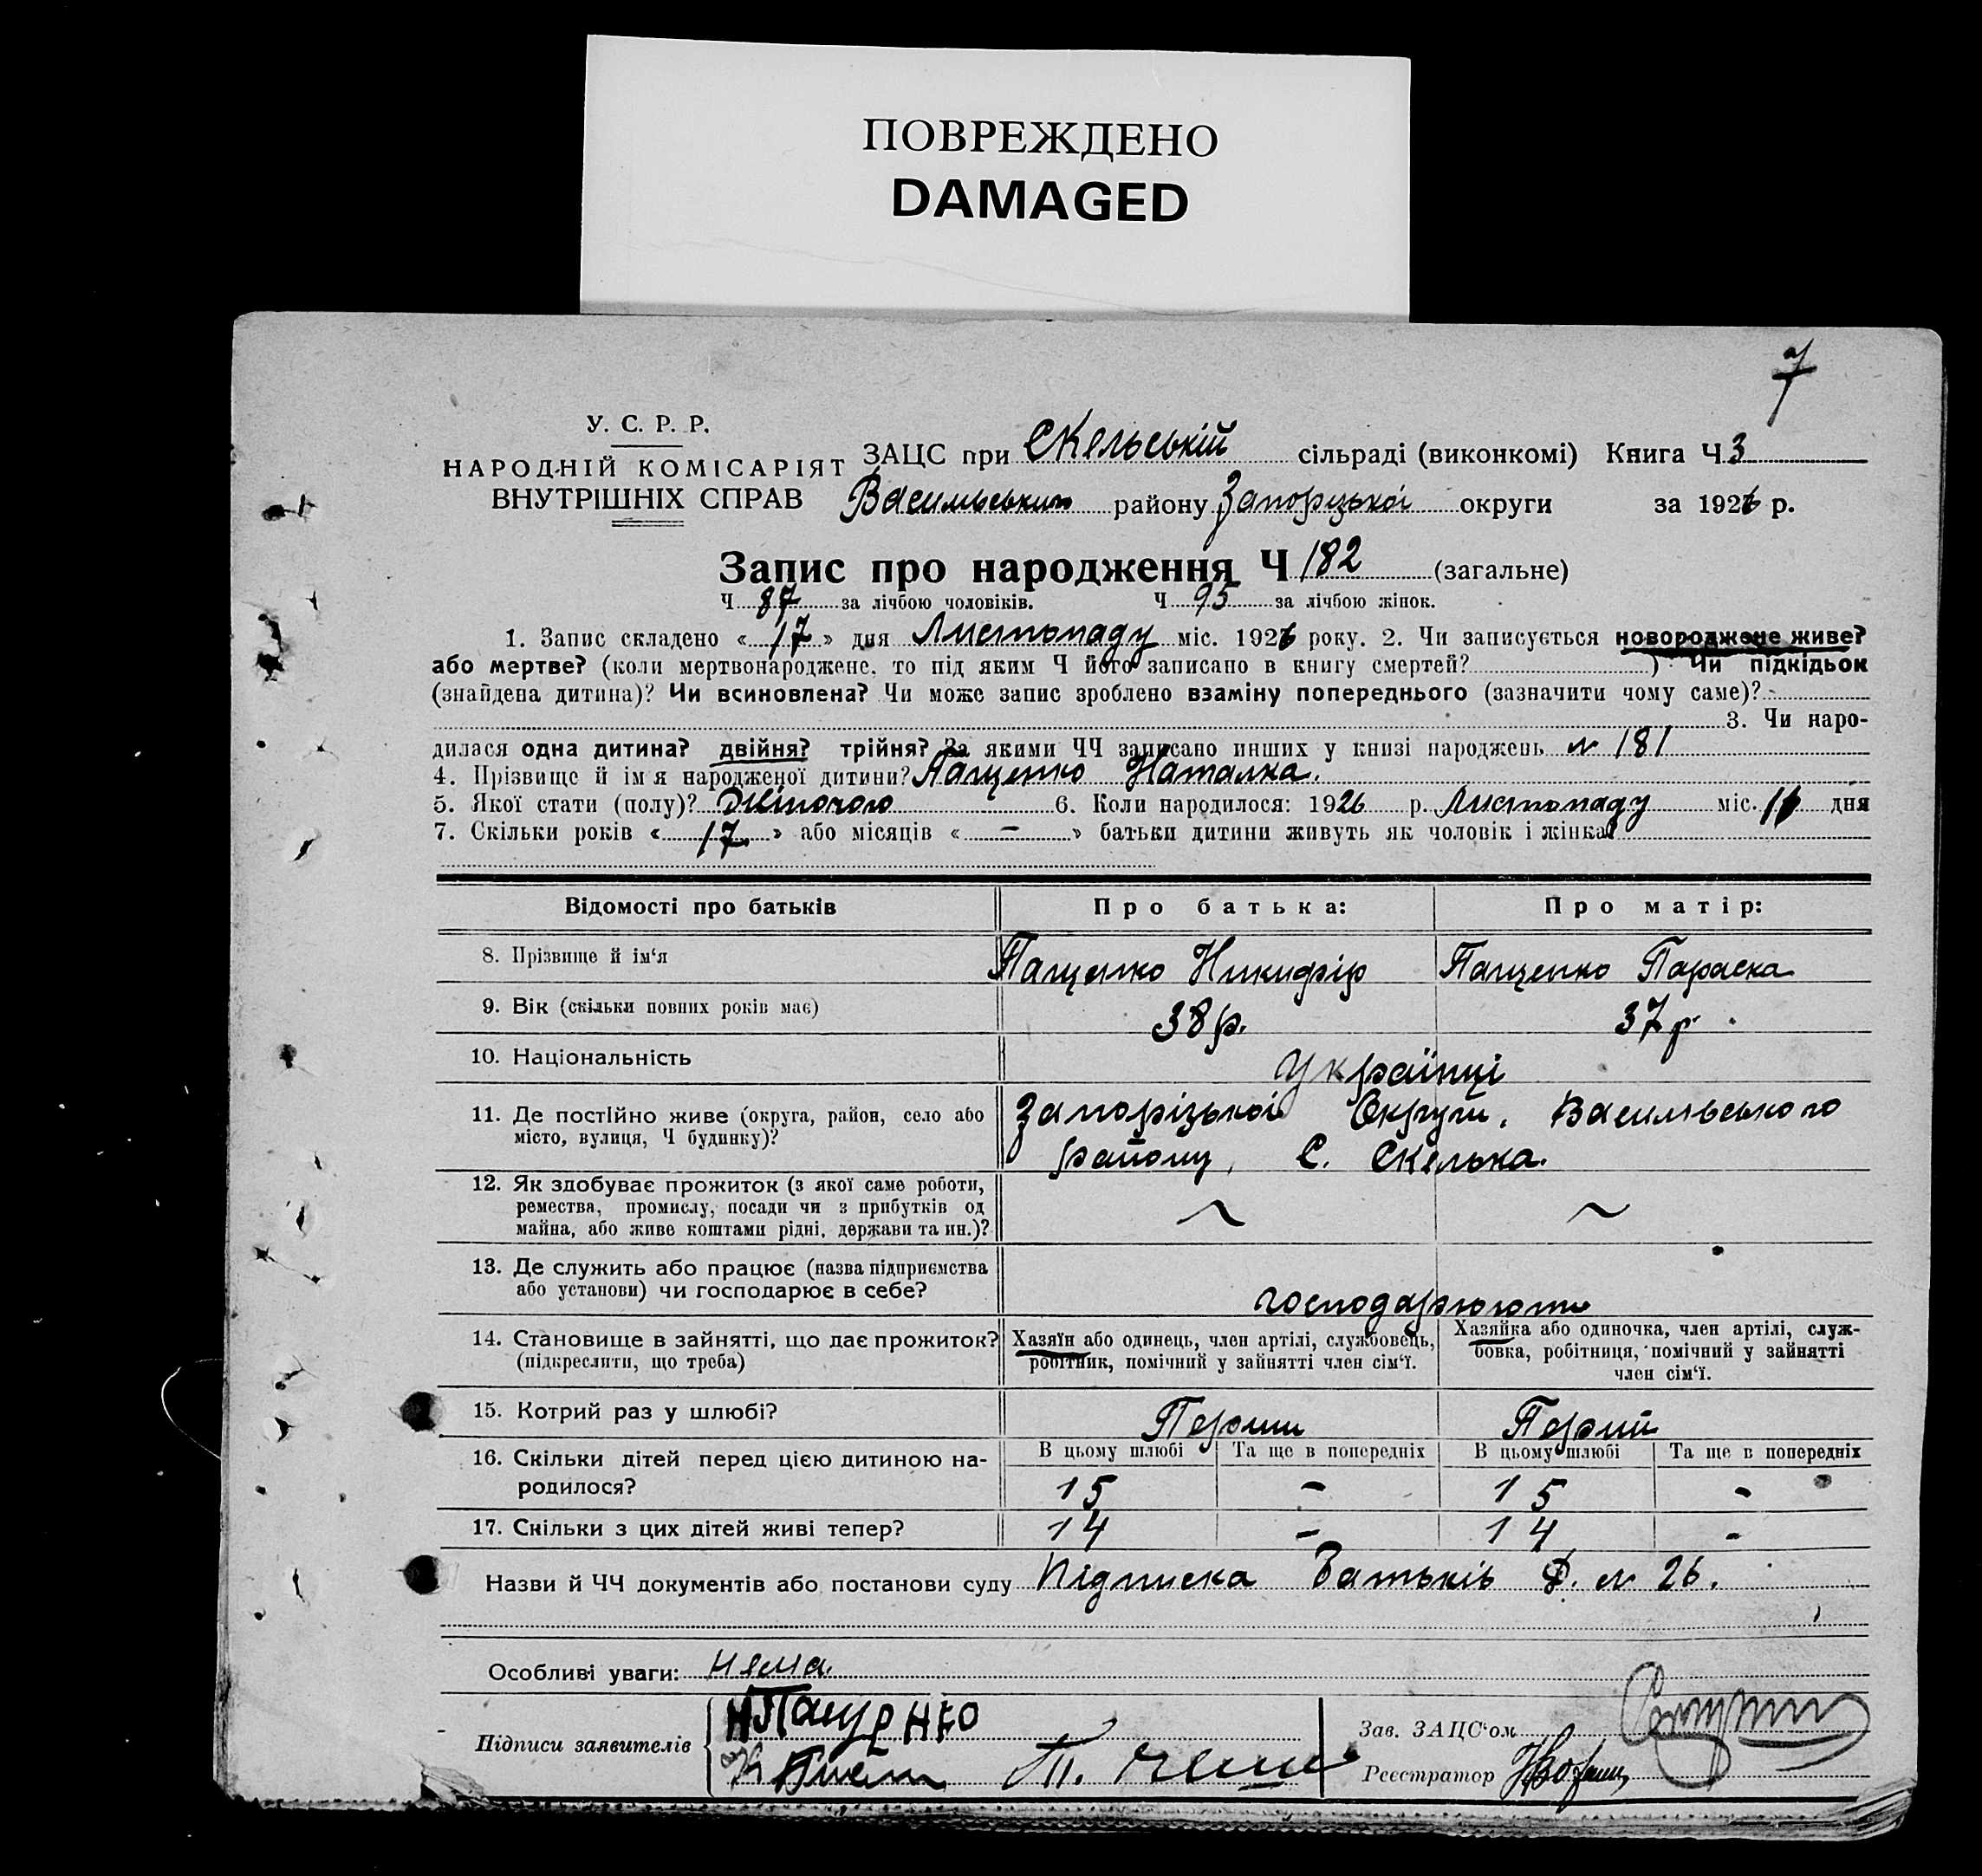 ПОВРЕЖДЕНО
DAMAGED
7
У. С. Р. Р.
НАРОДНІЙ КОМІСАРІЯТ
ВНУТРІШНІХ СПРАВ
ЗАЦС при Скельській сільраді (виконкомі) Книга Ч 3
району Запорізької округи за 1926 р.
Запис про народження Ч 182 (загальне)
Ч 87 за лічбою чоловіків. Ч 95 за лічбою жінок.
1. Запис складено « 17 » дня Листопаду міс. 1926 року. 2. Чи записується новороджене живе?
або мертве? (коли мертвонароджене, то під яким Ч його записано в книгу смертей? ) Чи підкідьок
(знайдена дитина)? Чи всиновлена? Чи може запис зроблено взаміну попереднього (зазначити чому саме)? -
3. Чи наро-
дилася одна дитина? двійня? трійня? За якими ЧЧ записано инших у книзі народжень № 181
4. Прізвище й ім'я народженої дитини? Пащенко Наталка.
5. Якої стати (полу)? Жіночого 6. Коли народилося: 1926 р. Листопаду міс. дня
7. Скільки років « 17 » або місяців « — » батьки дитини живуть як чоловік і жінка?
Відомості про батьків Про батька: Про матір:
8. Прізвище й ім'я Пащенко Никифір Пащенко Параска
9. Вік (скільки повних років має) 38 р. 37 р.
10. Національність Українці
11. Де постійно живе (округа, район, село або
місто, вулиця, Ч будинку)?
Запорізької Округи, Васильвського
району, С. Скелька.
12. Як здобуває прожиток (з якої саме роботи,
ремества, промислу, посади чи з прибутків од
майна, або живе коштами рідні, держави та ин.)?
~ ~
13. Де служить або працює (назва підприємства
або установи) чи господарює в себе?
господарюють
14. Становище в зайнятті, що дає прожиток?
(підкреслити, що треба)
Хазяїн або одинець, член артілі, службовець,
робітник, помічний у зайнятті член сім'ї.
Хазяйка або одиночка, член артілі, служ-
бовка, робітниця, помічний у зайнятті
член сім'ї.
15. Котрий раз у шлюбі? Перший Перший
16. Скільки дітей перед цією дитиною на-
родилося?
В цьому шлюбі Та ще в попередніх В цьому шлюбі Та ще в попередніх
15 - 15 -
17. Скільки з цих дітей живі тепер? 14 - 14 -
Назви й ЧЧ документів або постанови суду Підписка Батьків Ф. № 26.
Особливі уваги: нема.
Підписи заявителів
Н Пащенко
Зав. ЗАЦС'ом
Реєстратор